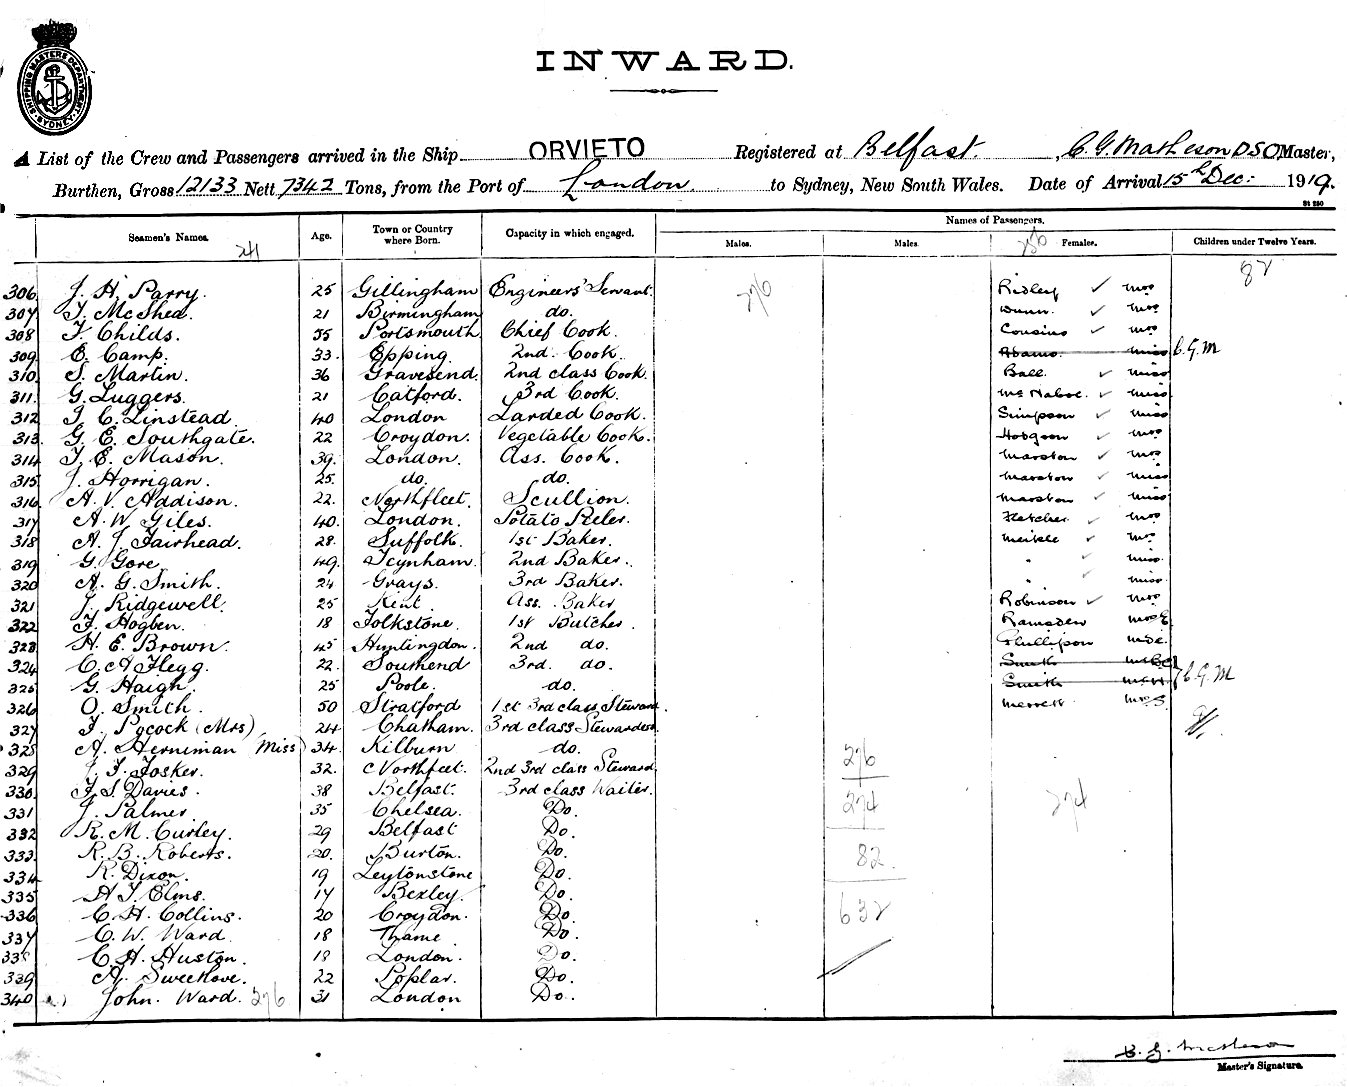 SHIPPING MASTERS DEPARTMENT
SYDNEY
INWARD.
A List of the Crew and Passengers arrived in the Ship ORVIETO Registered at Belfast. C. G. Matheson DSO, Master,
Burthen, Gross 12133 Nett 7342 Tons, from the Port of London. to Sydney, New South Wales. Date of Arrival 15th Dec: 1919.
Names of Passengers.
Seamen's Names. Age. Town or Country where Born. Capacity in which engaged. Males. Males. Females. Children under Twelve Years.
241 256 82
306 J. H. Parry. 25 Gillingham Engineers' Servant. 276 Ridley ✓ Mrs
307 T. McShea. 21 Birmingham do. Dunn ✓ Mrs
308 F. Childs. 35 Portsmouth Chief Cook. Cousins ✓ Mrs
309 E. Camp. 33. Epping. 2nd. Cook. Adams Miss C.G.M
310 S. Martin. 36 Gravesend. 2nd class Cook. Ball ✓ Miss
311. G. Luggers. 21 Catford. 3rd Cook. ✓ Miss
312 T. C. Linstead. 40 London Larded Cook. Simpson ✓ Miss
313. G. E. Southgate. 22 Croydon. Vegetable Cook. Hodgson ✓ Mrs
314 F. E. Mason. 39. London. Ass. Cook. Marston ✓ Mrs
315 J. Horrigan. 25. do. do. Marston ✓ Miss
316 A. V. Addison. 22. Northfleet. Scullion. Marston ✓ Miss
317 A. W. Giles. 40. London. Potato Peeler. Fletcher ✓ Mrs
318 A. J. Fairhead. 28. Suffolk. 1st Baker. Meikle ✓ Mrs
319 G. Gore. 49. Teynham. 2nd Baker. " ✓ Miss
320 A. G. Smith. 24 Grays. 3rd Baker. " ✓ Miss
321 J. Ridgewell. 25 Kent. Ass. Baker Robinson ✓ Mrs
322 F. Hogben. 18 Folkstone. 1st Butcher. Ramsden Mrs E
323 H. E. Brown. 45 Huntingdon. 2nd do. Phillipson
324 C. A. Flegg. 22. Southend 3rd. do. Smith
325 G. Haigh. 25 Poole. do. Smith C.G.M
326 O. Smith. 50 Stratford 1st 3rd class Steward. Merrett Mrs S
327 F. Pocock (Mrs) 24 Chatham. 3rd class Stewardess.
328 A. Herniman (Miss) 34. Kilburn do.
329 J. F. Fosker. 32. Northfleet. 2nd 3rd class Steward. 276
330 F. S. Davies. 38 Belfast. 3rd class Waiter. 274 274
331 J. Palmer. 35 Chelsea. Do.
332 R. M. Curley. 29 Belfast Do.
333 R. B. Roberts. 20. Burton. Do. 82
334 R. Dixon. 19 Leytonstone Do.
335 H. T. Elms. 17 Bexley. Do.
336 C. H. Collins. 20 Croydon. Do. 632
337 C. W. Ward. 18 Thame Do.
338 C. H. Huston. 18 London. Do.
339 A. Sweetlove. 22 Poplar. Do.
340 John. Ward. 276 31 London Do.
C. G. Matheson
Master's Signature.